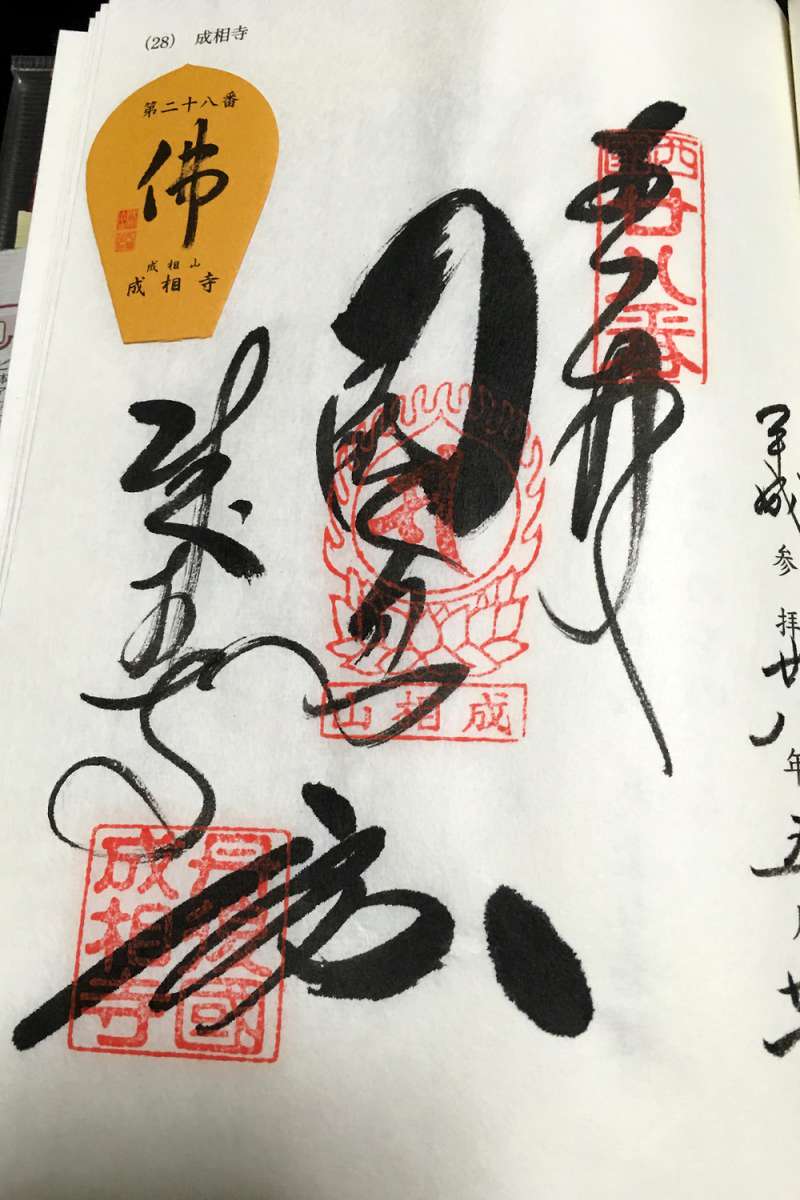 (28) 成相寺
第二十八番
佛
成相山
成相寺
奉拝
西國廿八番
成相山
成相寺
丹後國
成相寺
平成
参拝
廿八年五月